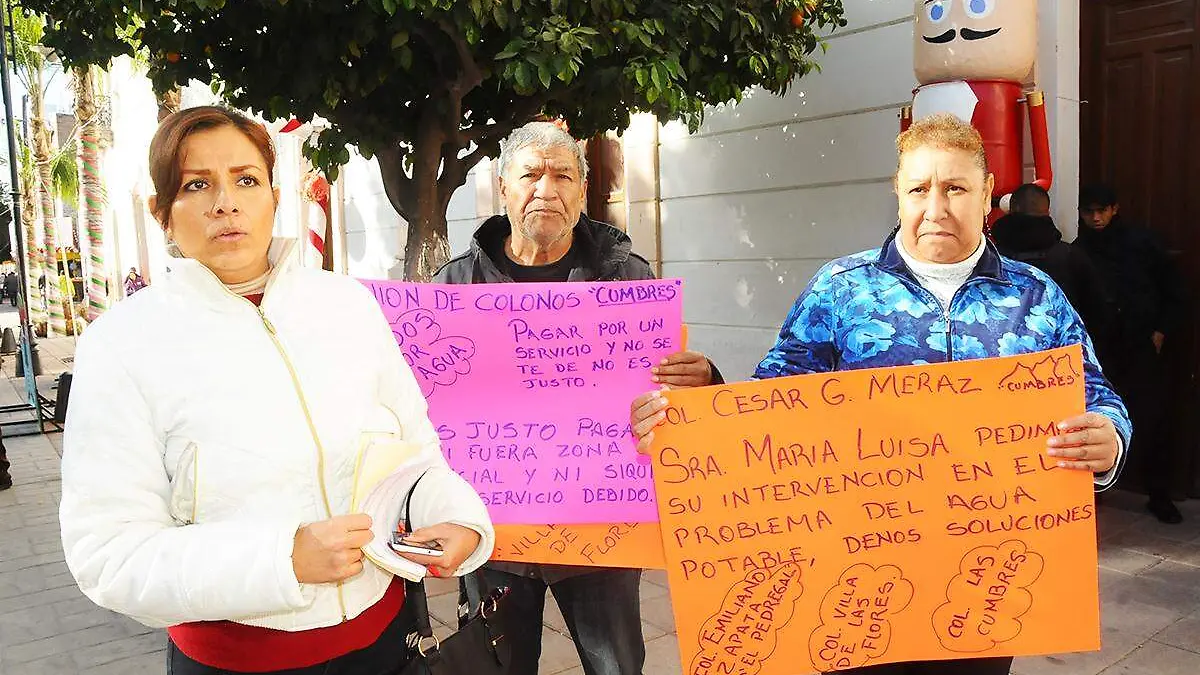 ION DE COLONOS "CUMBRES"
DOS
POR
AGUA
PAGAR POR UN
SERVICIO Y NO SE
TE DE NO ES
JUSTO.
S JUSTO PAGA
I FUERA ZONA
CIAL Y NI SIQUI
SERVICIO DEBIDO.
VILLA
DE
FLORES
COL. CESAR G. MERAZ
CUMBRES
SRA. MARIA LUISA PEDIMOS
SU INTERVENCION EN EL
PROBLEMA DEL AGUA
POTABLE, DENOS SOLUCIONES
COL. EMILIANO
ZAPATA
"EL PEDREGAL"
COL. VILLA
DE LAS
FLORES
COL. LAS
CUMBRES